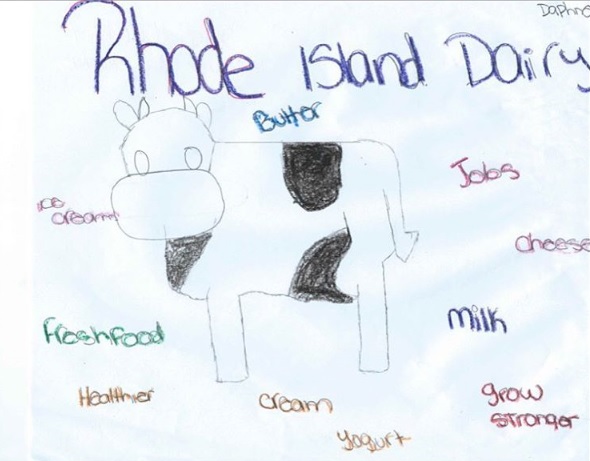 Daphne
Rhode Island Dairy
Butter
Jobs
ice
cream
cheese
Milk
Fresh food
Healthier
cream
grow
stronger
yogurt